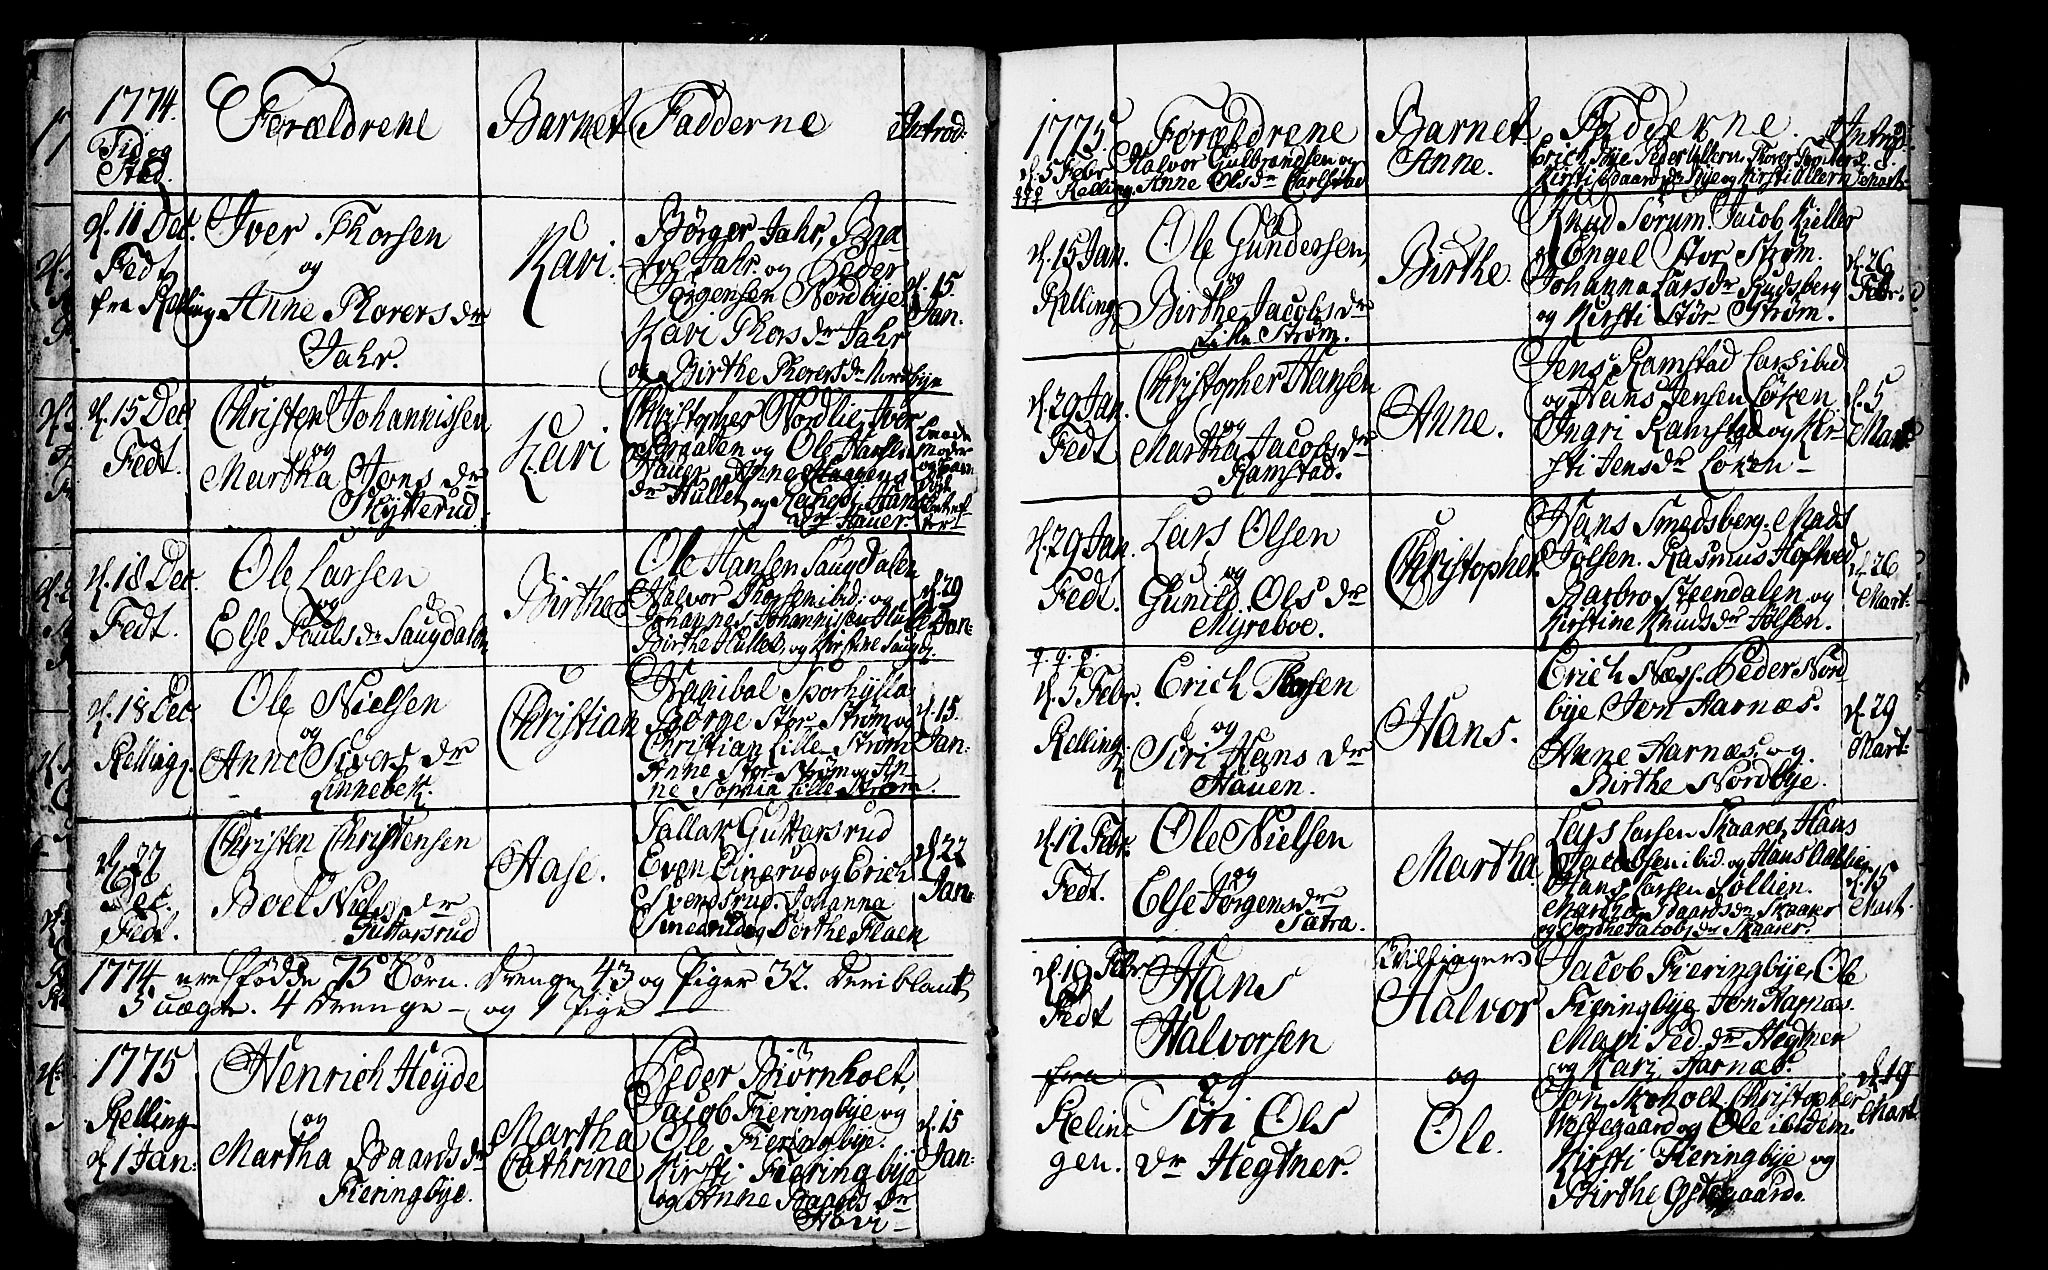 1774.
Tid og
Sted.
Forældrene
Barnet
Fadderne
Introd:
d. 11 Dec.
Fedt
fra Relling
Iver Thorsen
og
Anne Thorers dr
Jahr.
Kari.
Børger Jahr, Baa
Jahr. og Peder
Jørgensen Nordbye
Kari Thors dr Jahr
og Birthe Thorers dr Nordbye
d. 15.
Jan.
d. 15 Dec
Fedt.
Christen Johannissen
og
Martha Jens dr
Skytterud.
Kari
Christopher Nordlie Iver
og Ole Hansen
Hauer. Anne Haagens
dr Hullet og Hans
dr Hauer.
d. 18 Dec.
Fedt.
Ole Larsen
og
Else Pouls dr Saugdalen
Birthe
Ole Hansen Saugdalen
Halvor Thorsen ibid: og
Johannes Johannissen Hullet
Birthe Hullet, og Kirstine
d. 29
Jan:
d. 18 Dec
Relling.
Ole Nielsen
og
Anne Sivers dr
Linnebek.
Christian
Hanibal Sporhylla
Børge Stor-Strøm og
Christian Lille Strøm
Anne Stor Strøm og An-
ne Sophia Lille Strøm.
d. 15.
Jan:
d. 27
Dec.
Fedt.
Christen Christensen
og
Boel Niels dr
Guttarsrud
Aase.
Tallak Guttarsrud
Even og Erich
Sverdsrud. Johanna
og Dorthe Flaen
d. 22
Jan:
1774 ere fødde 75 Børn. Drenge 43 og Piger 32. Deriblant
5 uægte. 4 Drenge – og 1 Pige
1775
Relling
d. 1 Jan:
Henrich Heyde
og
Martha Baards dr
Fieringbye.
Martha
Cathrine
Peder Biørnholt,
Jacob Fieringbye og
Ole Fieringbye.
Kirsti Fieringbye
og Anne Baards dr
d. 15
Jan:
1775.
Forældrene
Barnet
Fadderne.
Introd:
d. 5 Febr
Relling
Halvor Gulbrandsen og
Anne Ols dr Carlstad
Anne.
Erich Bye Peder Ullern. Thorer
Kirsti Baards dr Bye og Kirsti Ullern
Mart:
d. 15 Jan.
Relling
Ole Gundersen,
og
Birthe Jacobs dr
Lille Strøm.
Birthe.
Knud Sørum. Jacob Kieller
og Engel Stor Strøm.
Johanna Lars dr Rudsberg
og Kirsti Stor Strøm.
d. 26
Febr.
d. 29 Jan.
Fedt
Christopher Hansen
og
Martha Jacobs dr
Ramstad.
Anne.
Jens Ramstad Lars ibid
og Hans Jensen Løken
Ingri Ramstad og Kir
sti Jens dr Løken –
d. 5
Mart:
d. 29 Jan.
Fedt.
Lars Olsen
og
Gunild Ols dr
Myreboe.
Christopher.
Hans Smedsberg. Mads
Jølsen. Rasmus Hofved
Barbro Steendalen og
Kirstine Knuds dr Jølsen.
d. 26
Mart:
d. 5 Febr.
Relling.
Erich Thorsen
og
Siri Hans dr
Hauen.
Hans.
Erich Næss. Peder Nord
bye. Jon Aarnæs.
Anne Aarnæs og
Birthe Nordbye.
d. 29
Mart:
d. 12 Febr.
Fedt.
Ole Nielsen
og
Else Jørgens dr
Sætra.
Martha.
Lars Larsen Skaarer, Hans
Jacobsen ibid. og Hans
Hans Larsen Løllien.
Martha Baards dr Skaarer
og Dorthe Jacobs dr Skaarer.
d. 15
Mart.
d. 19 Febr.
Fedt
fra
Relin
gen.
Hans
Halvorsen
og
Siri Ols
dr Hegtner.
Tvillinger
Halvor
og
Ole.
Jacob Fieringbye, Ole
Fieringbye. Jon Aarnæs.
Mari Ped. dr Hegtner
og Kari Aarnæs.
Jon Skoholt, Christopher
Vestegaard og Ole ibidem.
Kirsti Fieringbye og
Birthe Østegaard.
d. 19
Mart